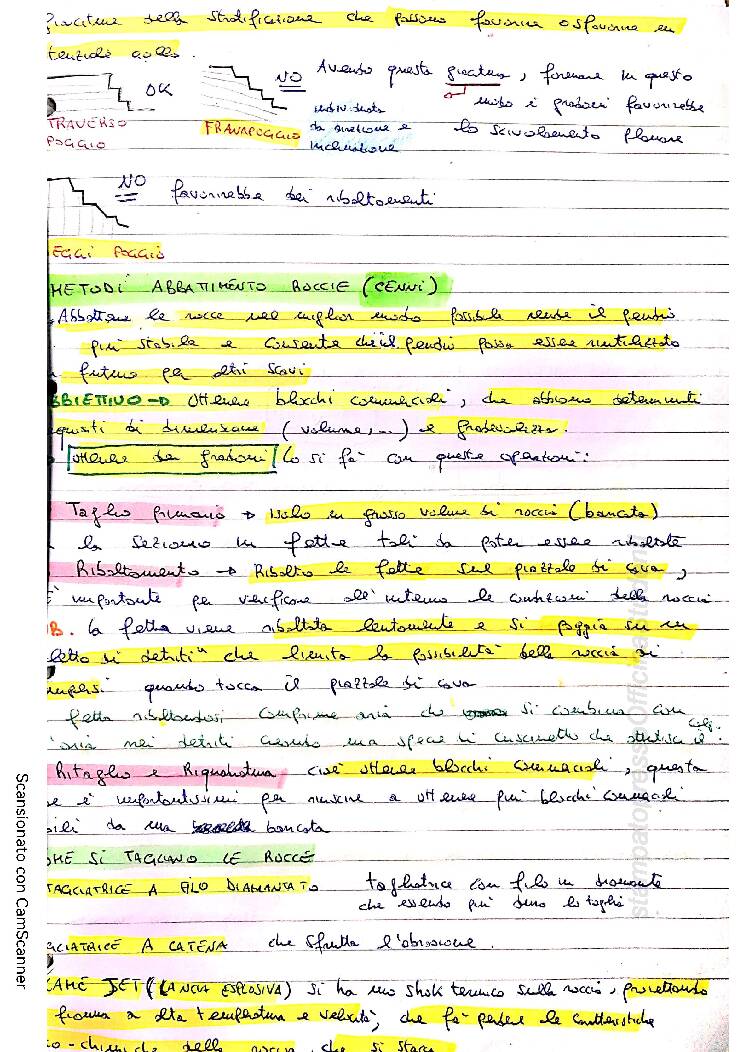 giacitura della stratificazione che possono favorire o sfavorire un
potenziale crollo.
OK
NO
Avendo questa giacitura, formare in questo
modo i gradoni favorirebbe
lo scivolamento planare
individuata
da direzione e
inclinazione
TRAVERSO
POGGIO
FRANAPOGGIO
NO favorirebbe dei ribaltamenti
REGGI POGGIO
METODI ABBATTIMENTO ROCCIE (CENNI)
Abbattere le rocce nel miglior modo possibile rende il pendio
più stabile e consente che il pendio possa essere riutilizzato
futuro per altri scavi
OBIETTIVO → Ottenere blocchi commerciali, che abbiano determinati
requisiti di dimensione (volume, ...) e
ottenere dei gradoni lo si fà con queste operazioni:
Taglio primario → isolo un grosso volume di roccia (bancata)
la seziono in fette tali da poter essere ribaltate
Ribaltamento → Ribalto le fette sul piazzale di cava,
È importante per verificare all'interno le condizioni della roccia
NB. la fetta viene ribaltata lentamente e si poggia su un
"letto di detriti" che limita la possibilità della roccia di
rompersi quando tocca il piazzale di cava
fetta ribaltandosi comprime aria che si combina con
l'aria nei detriti creando una specie di cuscinetto che attutisce il colpo.
Ritaglio e Riquadratura cioè ottenere blocchi commerciali, questa
è importantissimi per riuscire a ottenere più blocchi commerciali
possibili da una bancata
COME SI TAGLIANO LE ROCCE
TAGLIATRICE A FILO DIAMANTATO tagliatrice con filo in diamante
che essendo più duro lo taglia
TAGLIATRICE A CATENA che sfrutta l'abrasione.
FLAME JET (LANCIA ESPLOSIVA) si ha uno shok termico sulla roccia, proiettando
fiamma a alta temperatura e velocità, che fà perdere le caratteristiche
fisico-chimiche della roccia, che si stacca
Scansionato con CamScanner
stampatopressoOfficinastudenti